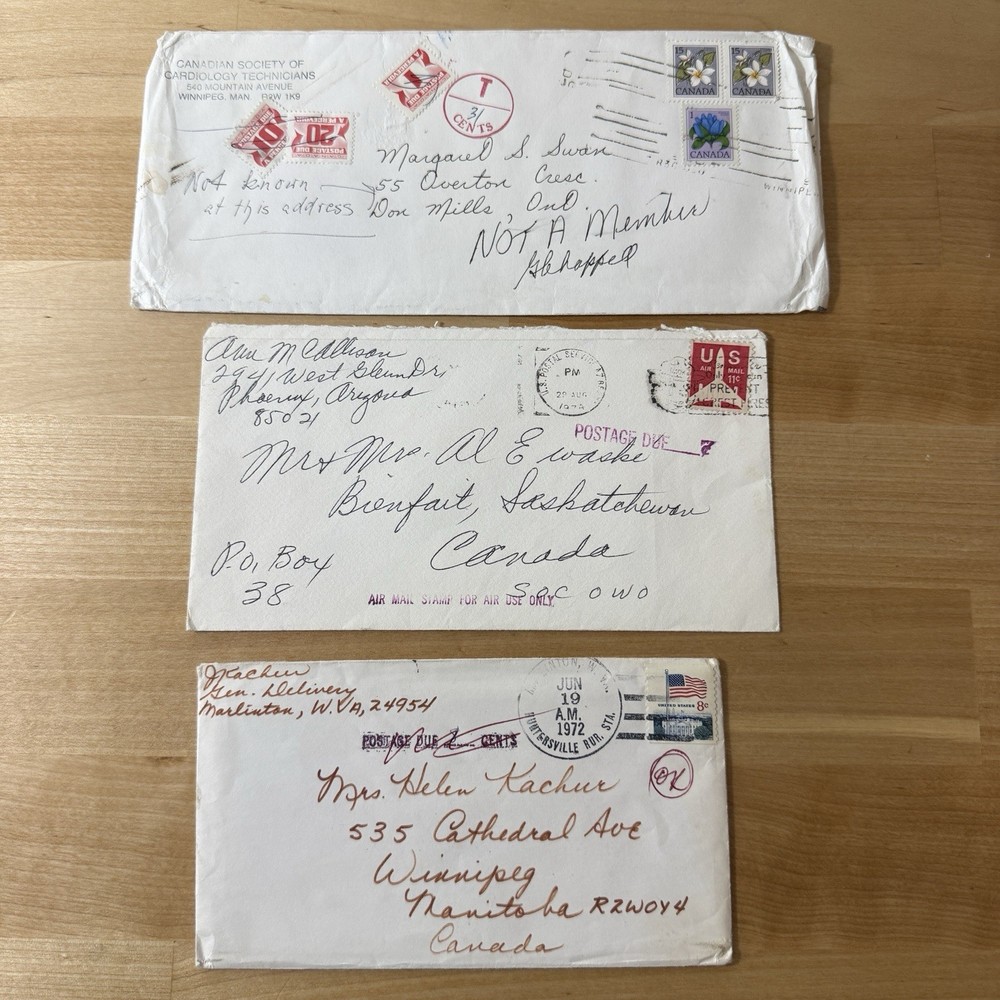 CANADIAN SOCIETY OF
CARDIOLOGY TECHNICIANS
540 MOUNTAIN AVENUE
WINNIPEG, MAN. R2W 1K9
1
POSTAGE DUE
T
31
CENTS
15 15
CANADA CANADA
1
CANADA
10
20
POSTAGE DUE
WINNIPE
Margaret S. Swan
55 Overton Cresc.
Don Mills, Ont.
Not known
at this address
NOT A Member
Ann McCallison
2941 West Glenn Dr.
Phoenix, Arizona
85021
U.S. POSTAL SERVICE
PM
US
AIR MAIL
11c
POSTAGE DUE 7
Mr & Mrs. Al Ewaske
Bienfait, Saskatchewan
Canada
P.O. Box
38
AIR MAIL STAMP FOR AIR USE ONLY.
J Kachur
Gen. Delivery
Marlinton, W. VA, 24954
JUN
19
A.M.
1972
HUNTERSVILLE RUR. STA.
UNITED STATES 8c
POSTAGE DUE CENTS
OK
Mrs. Helen Kachur
535 Cathedral Ave
Winnipeg
Manitoba R2W0Y4
Canada